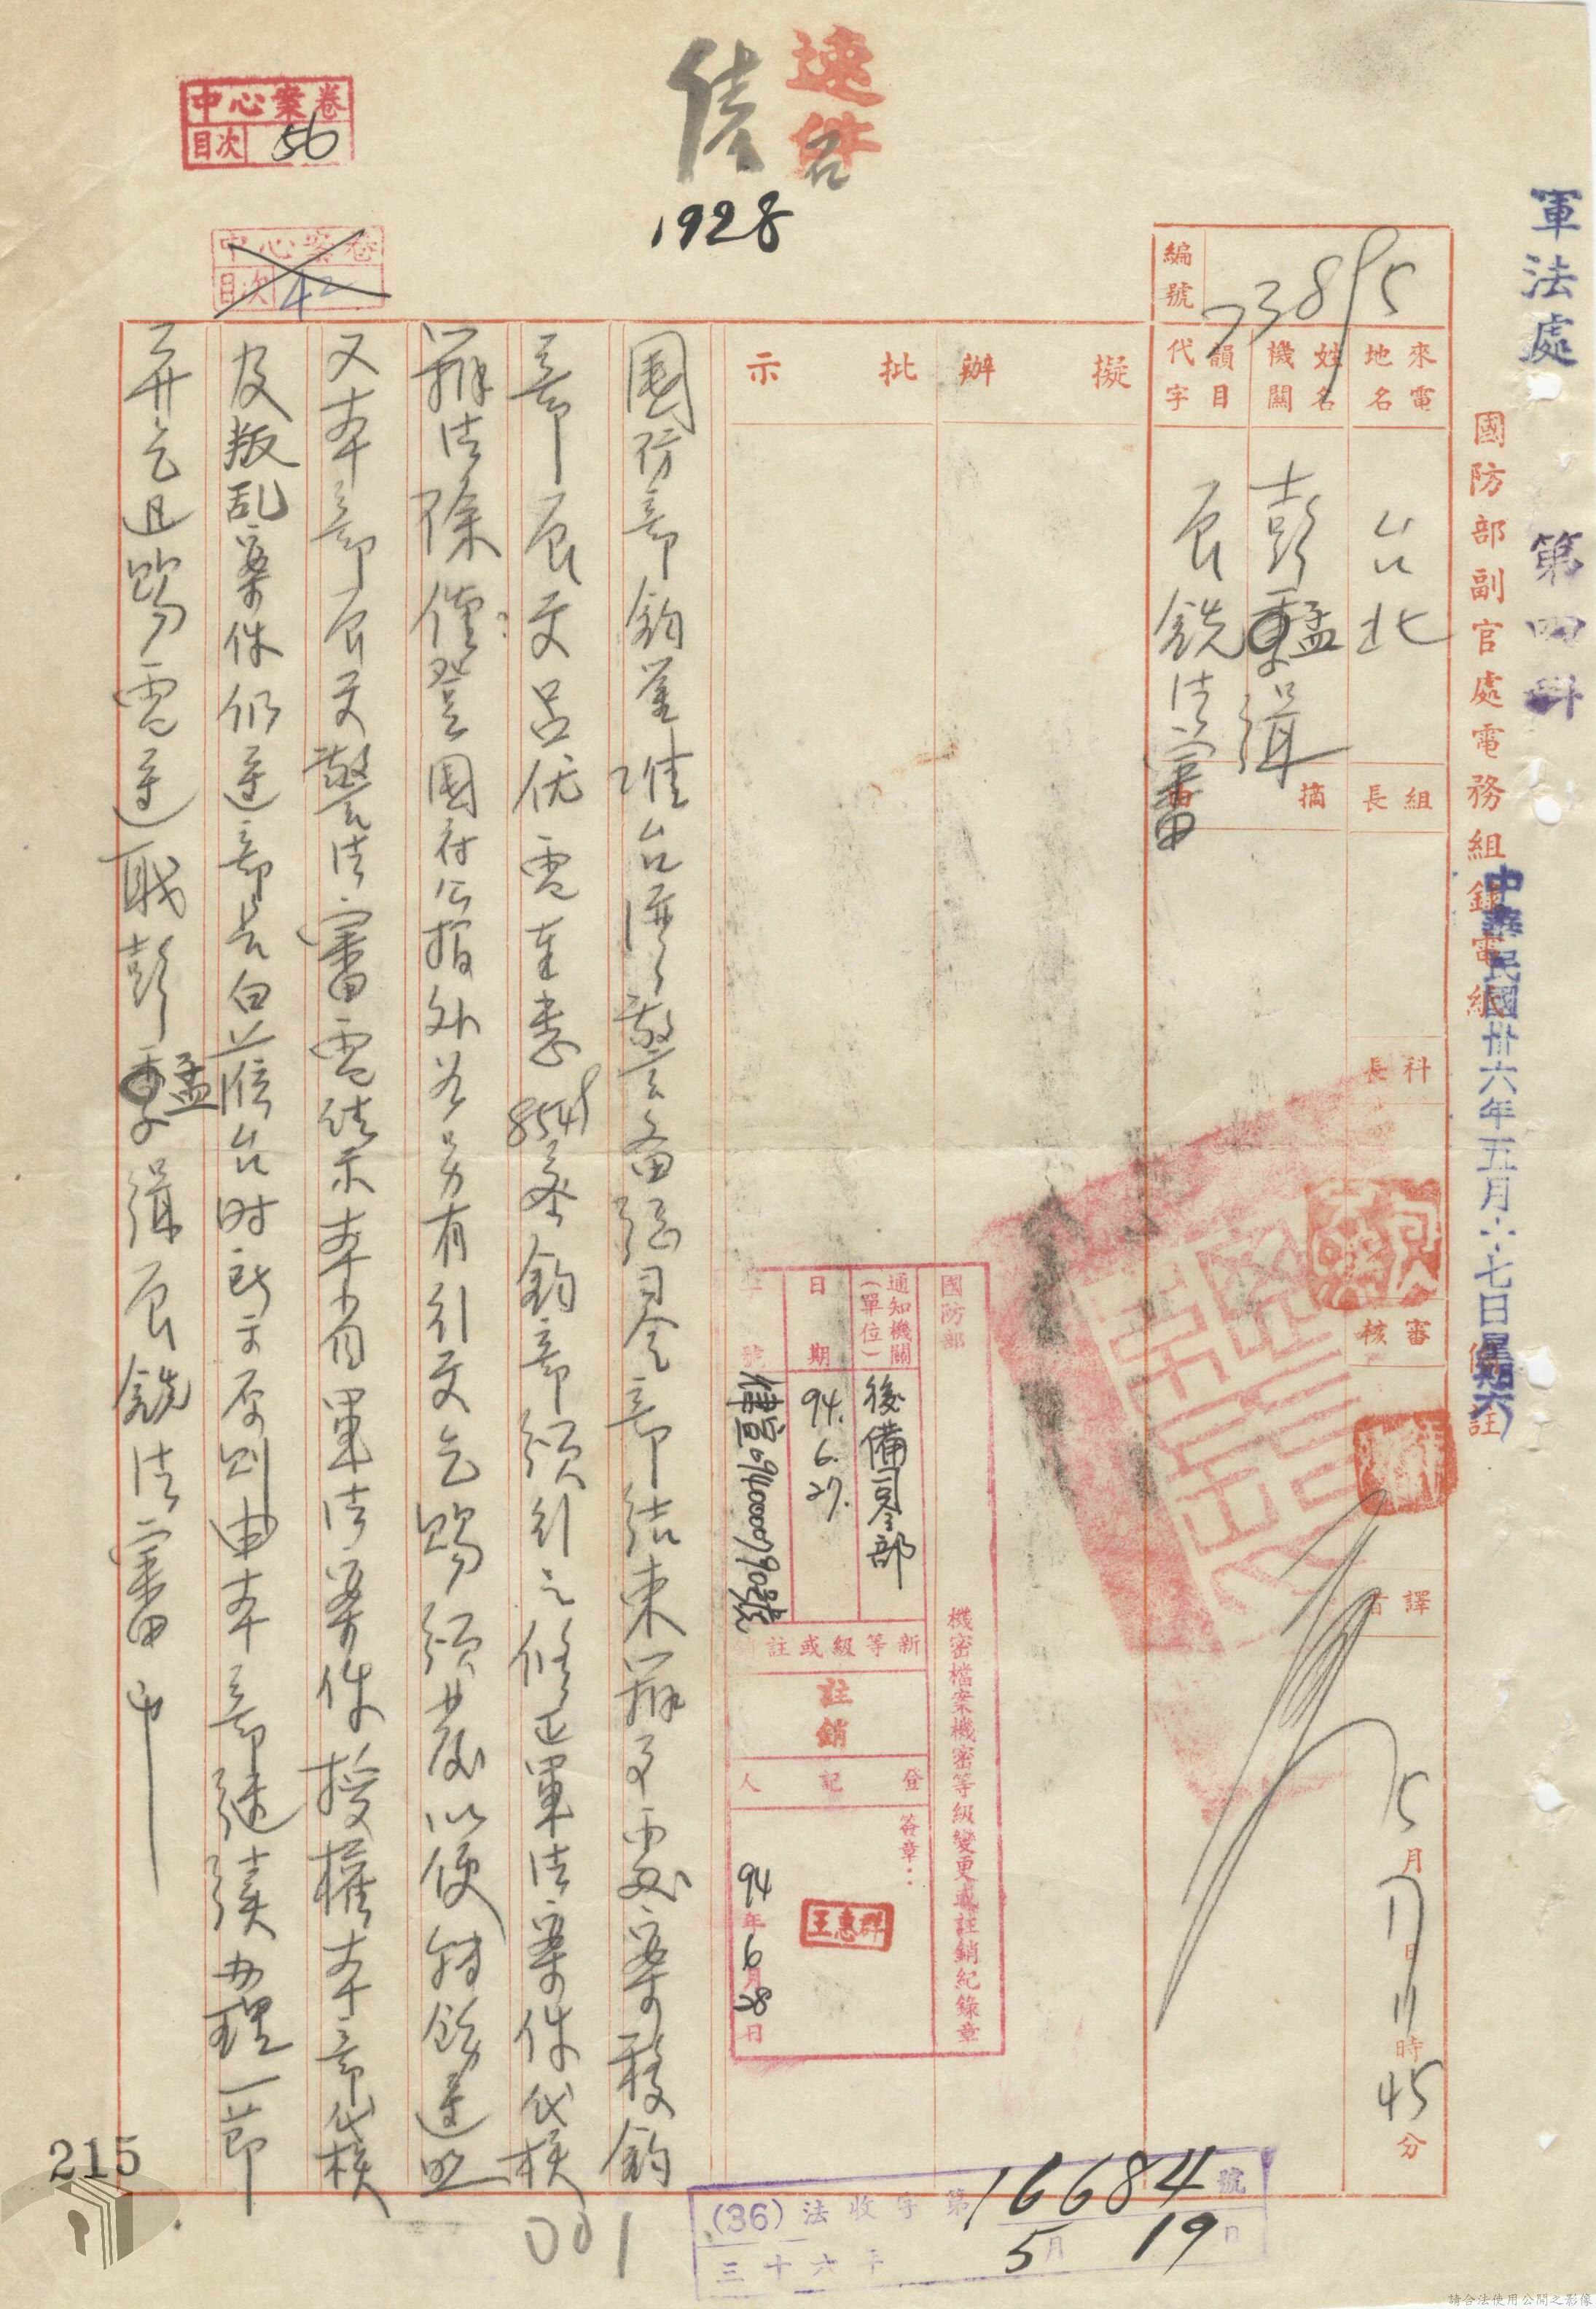 軍法處 第四科
國防部副官處電務組錄電紙
中華民國卅六年五月十七日星期六
附註
速件
1928
中心案卷
目次 56
中心案卷
目次 42
編號 73895
來電地名 台北
姓名機關 彭孟緝
韻目代字 辰銑法審
摘由
組長
科長
審核
譯者
5月17日11時45分
擬辦
批示
國防部鈞鑒准台灣警備總司令部結束辦事處案移鈞
部辰文呂優電奉悉854參鈞部頒行之修正軍法案件代核
辦法除僅登國府公報外若另有引文乞賜頒發以便轉飭遵照
又本部辰文警法審電請示本省軍法案件授權本部代核
及叛乱案件仍遵部長白蒞台時訓示原則由本部繼續办理一節
並乞迅賜電遵職彭孟緝辰銑法審印
國防部
機密檔案機密等級變更或註銷紀錄章
通知機關(單位) 後備司令部
日期 94.6.27.
文號 律宣0940000790號
新等級或註銷
註銷
登記人
簽章：
王惠群
94年6月28日
(36)法收字第16684號
三十六年5月19日
001
215
請合法使用公開之影像